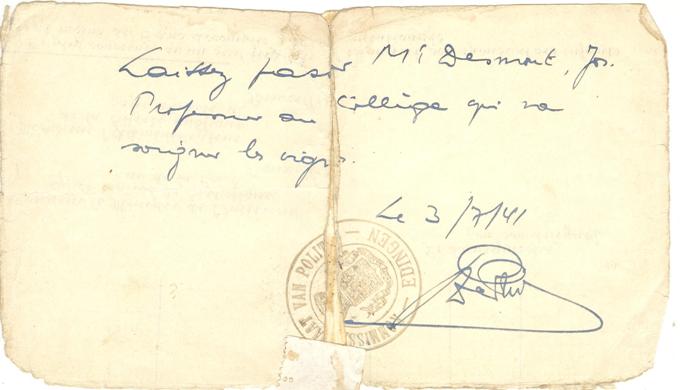 Laissez passer Mr Desmont, Jos.
Professeur au Collège qui va
soigner les vignes.
Le 3/7/41
KOMMISSARIAAT VAN POLITIE — EDINGEN —